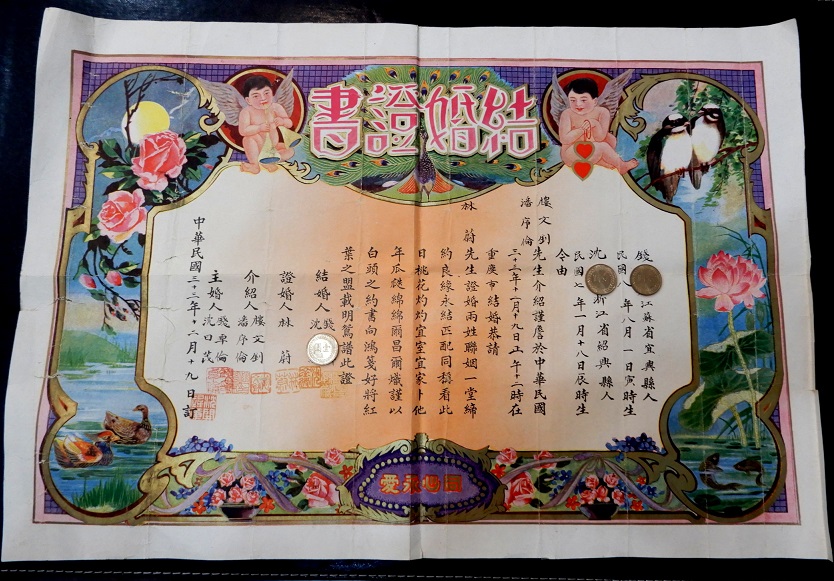 結婚證書
錢 江蘇省宜興縣人
民國八年八月一日寅時生
沈 浙江省紹興縣人
民國七年一月十八日辰時生
令由
樓文釗
潘序倫
先生介紹謹詹於中華民國
三十三年十一月十九日上午十二時在
重慶市結婚恭請
林 蔚 先生證婚兩姓聯姻一堂締
約良緣永結匹配同稱看此
日桃花灼灼宜室宜家卜他
年瓜瓞綿綿爾昌爾熾謹以
白頭之約書向鴻箋好將紅
葉之盟載明鴛譜此證
結婚人 錢
沈
證婚人 林 蔚
介紹人 樓文釗
潘序倫
主婚人 錢卓倫
沈
中華民國三十三年十一月十九日訂
永愛